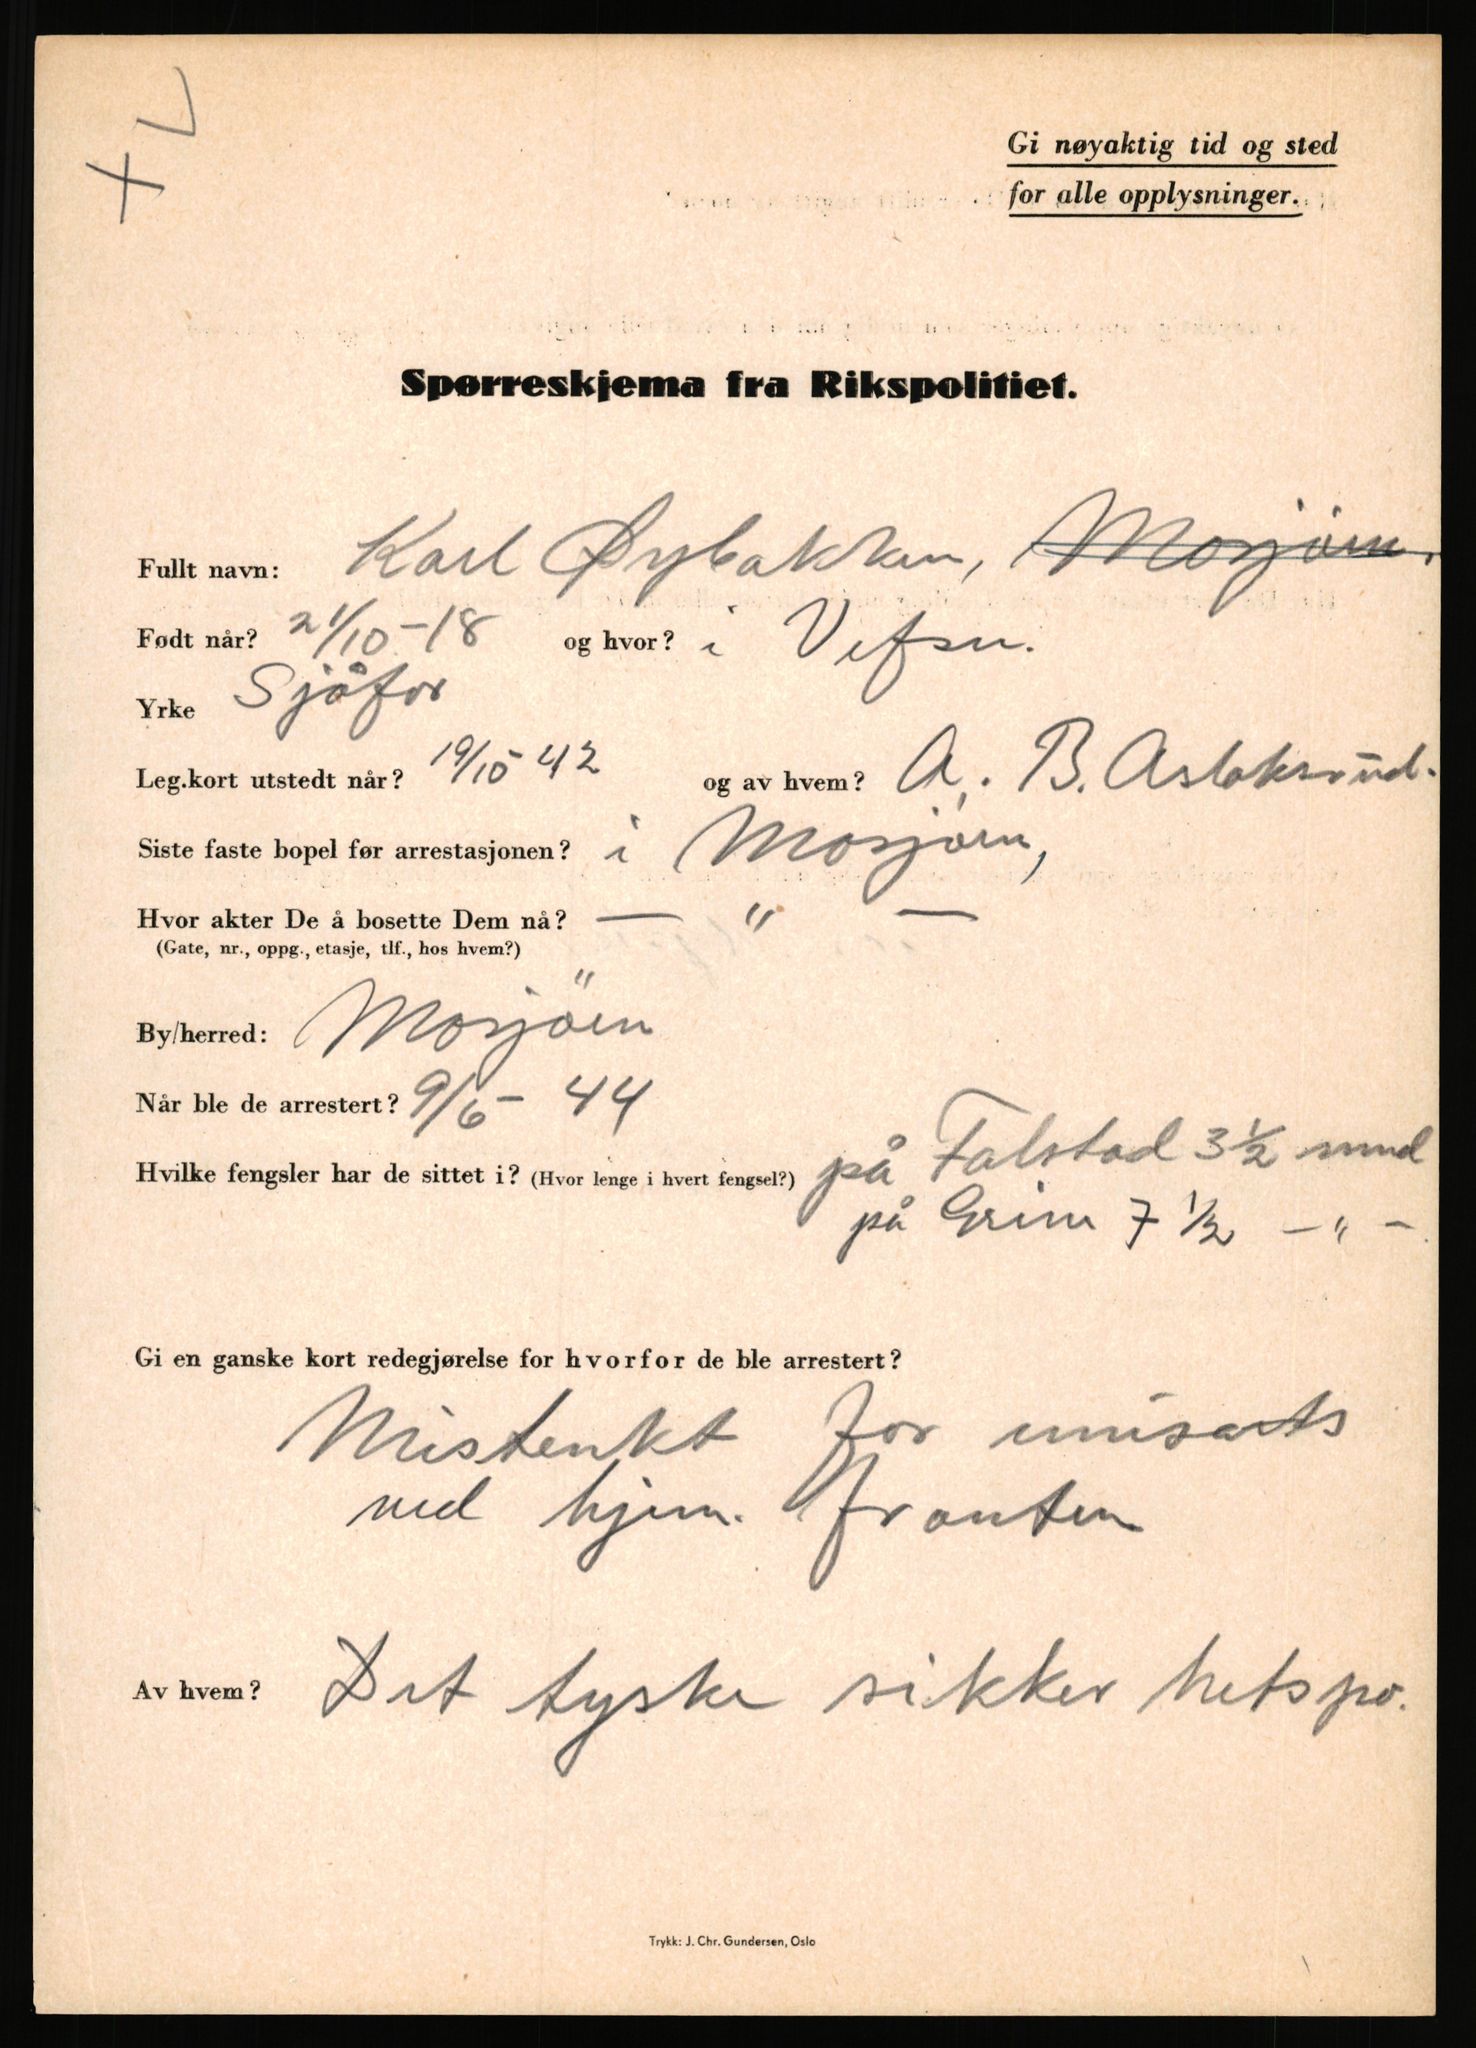 + L
Gi nøyaktig tid og sted
for alle opplysninger.
Spørreskjema fra Rikspolitiet.
Fullt navn: Karl Øybakken, Mosjöen.
Født når? 21/10-18 og hvor? i Vefsn.
Yrke Sjåfør
Leg.kort utstedt når? 19/10 42 og av hvem? A. B. Aslaksrud.
Siste faste bopel før arrestasjonen? i Mosjöen,
Hvor akter De å bosette Dem nå? — " —
(Gate, nr., oppg., etasje, tlf., hos hvem?)
By/herred: Mosjöen
Når ble de arrestert? 9/6- 44
Hvilke fengsler har de sittet i? (Hvor lenge i hvert fengsel?) på Falstad 3 ½ mnd
på Grini 7 ½ — " —
Gi en ganske kort redegjørelse for hvorfor de ble arrestert?
Mistenkt for
ved hjem. fronten
Av hvem? Det tyske sikker hetspo.
Trykk: J. Chr. Gundersen, Oslo